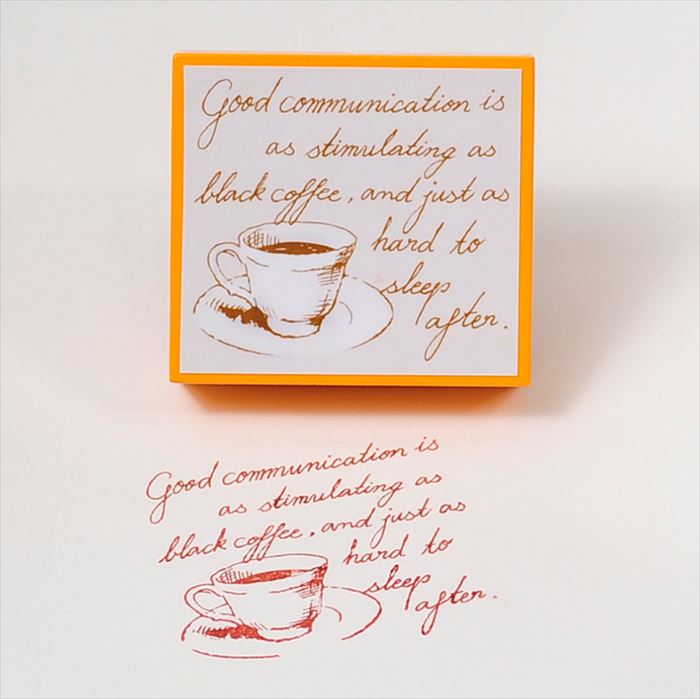 Good communication is
as stimulating as
black coffee, and just as
hard to
sleep
after.
Good communication is
as stimulating as
black coffee, and just as
hard to
sleep
after.